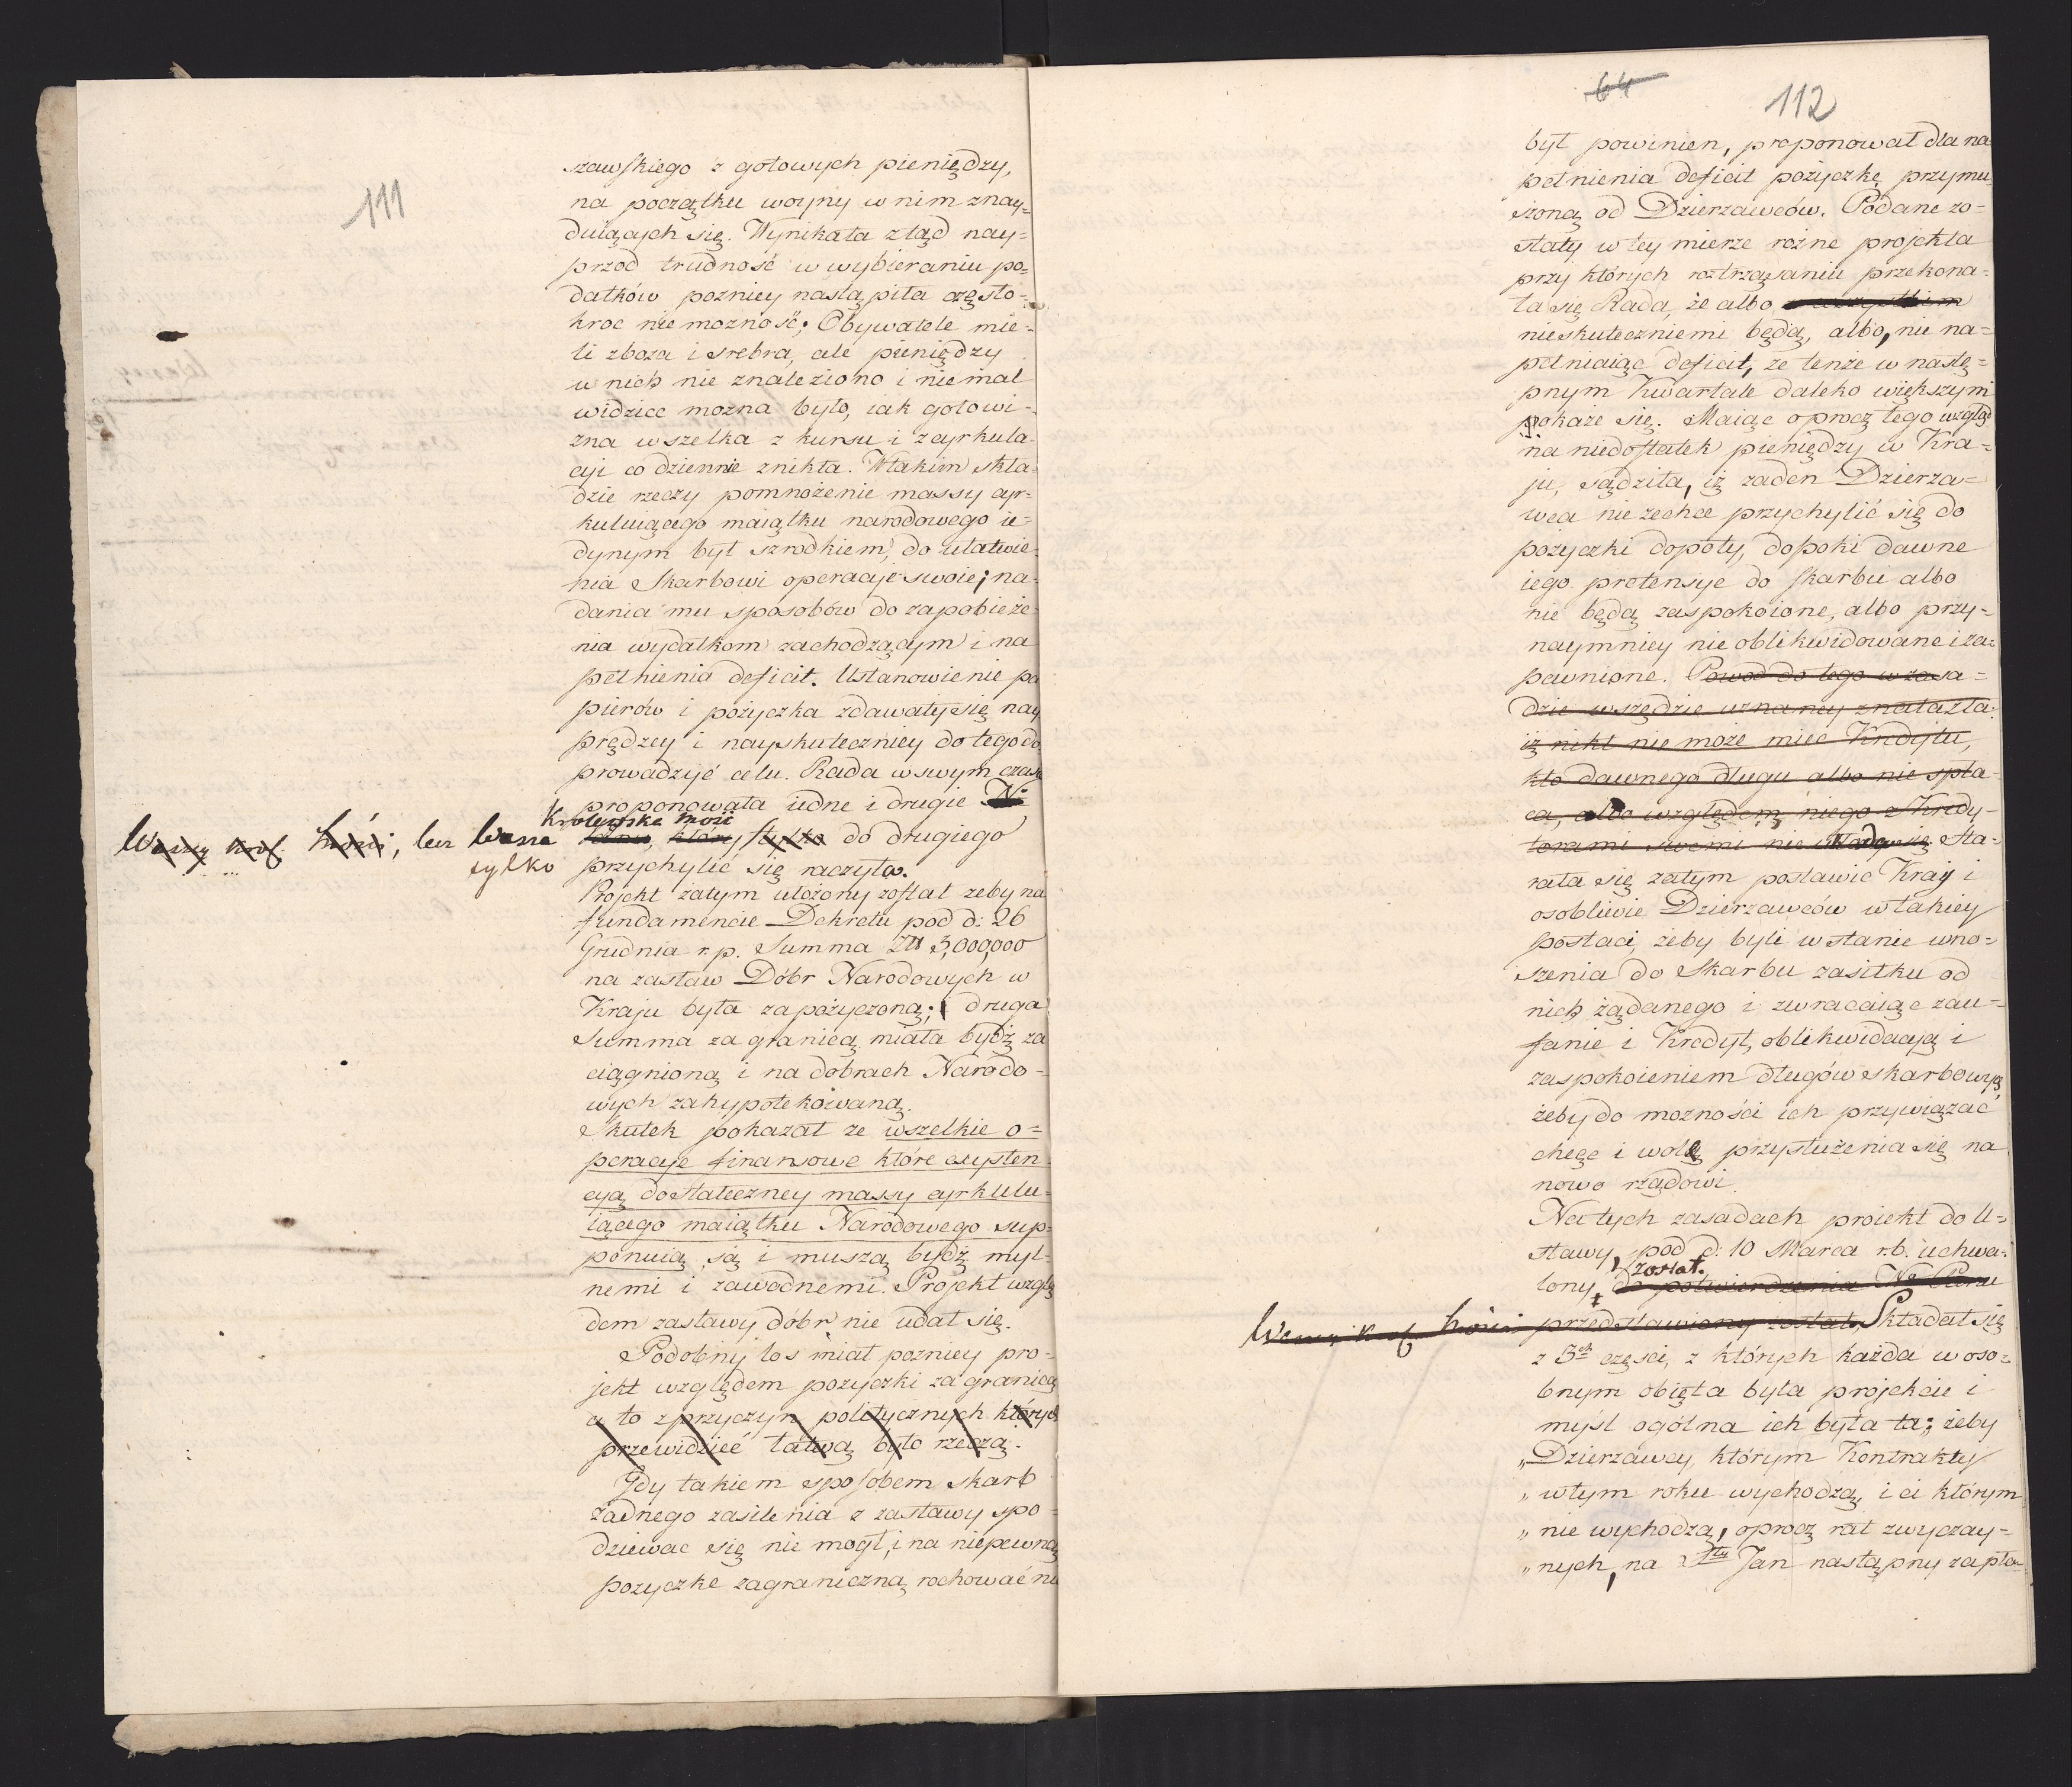 111
szawskiego z gotowych pieniędzy,
na początku woyny w nim znay=
duiących się. Wynikała ztąd nay=
przod trudność w wybieraniu po=
datków pozniey nastąpiła często=
kroc niemozność; Obywatele mie=
li zboza i srebra, ale pieniędzy
u nich nie znaleziono i niemal
widziec mozna było, iak gotowi=
zna wszelka z kursu i z cyrkula=
cyi codziennie znikła. W takim skła=
dzie rzeczy pomnożenie massy cyr=
kuluiącego maiątku narodowego ie=
dynym był szrodkiem, do ułatwie=
nia Skarbowi operacyi swoie; na=
dania mu sposobów do zapobieże=
nia wydatkom zachodzącym i na
pełnienia deficit. Ustanowienie pa
pierów i pożyczka zdawały się nay
prędzey i nayskuteczniey do tego do
prowadzyć celu. Rada w swym czasie
proponowała iedne i drugie N:
Królewska Mość
Waszey Krol. Mości, lecz Wasza Panu, który tylko do drugiego
tylko przychylić się raczyła.
Projekt zatym ułożony został zeby na
fundamencie Dekretu pod d: 26
Grudnia r. p. Summa Zł 3,000,000
na zastaw Dóbr Narodowych w
Kraju była zapożyczoną; druga
Summa za granicą miała bydź za
ciągnioną i na dobrach Narodo=
wych zahypotekowaną.
Skutek pokazał ze wszelkie o=
peracyje finansowe które exysten=
cyą dostateczney massy cyrkulu=
iącego maiątku Narodowego sup=
ponuią, są i muszą bydź myl=
nemi i zawodnemi. Projekt wzglę
dem zastawy dóbr nie udał się.
Podobny los miał pozniey pro=
jekt względem pozyczki za granicą
a to z przyczyn politycznych których
przewidzieć łatwą było rzeczą.
Gdy takiem sposobem skarb
żadnego zasilenia z zastawy spo=
dziewac się nie mogł, i na niepewną
pozyczke zagraniczną rachować nie
64
112
był powinien, proponował dla na
pełnienia deficit pożyczkę przymu
szoną od Dzierzawców. Podane zo=
stały w tey mierze rożne projekta
przy których roztrząsaniu przekona=
ła się Rada, że albo
nieskuteczniemi będą, albo, nie na=
pełniaiąc deficit, ze tenże w nastę=
pnym Kwartale daleko większym
pokaże się. Maiąc oprocz tego wzgląd
na niedostatek pieniędzy w Kra=
ju, sądziła, iż zaden Dzierza=
wca nie zechce przychylić się do
pożyczki dopóty, dopoki dawne
iego pretensye do skarbu albo
nie będą zaspokoione, albo przy=
naymniey nie oblikwidowane i za=
pewnione. Powod do tego w zasa=
dzie wszędzie uznaney znalazła:
iż nikt nie może miec Kredytu,
kto dawnego długu albo nie spła=
ca, albo względem niego z Kredy=
torami swemi nie układa się. Sta=
rała się zatym postawic Kray i
osobliwie Dzierzawców w takiey
postaci, żeby byli w stanie wno=
szenia do Skarbu zasiłku od
nich żądanego i zwracaiąc zau=
fanie i Kredyt, oblikwidacyą i
zaspokoieniem długów skarbowych,
żeby do mozności ich przywiązać
chęć i wolę przysłużenia się na
nowo rządowi.
Na tych zasadach proiekt do U=
stawy, pod d: 10 Marca r. b. uchwa=
został.
lony, do potwierdzenia N Panu
Waszey Krol. Mości przedstawiony został. Składał się
z 3ch części, z których każda w oso=
bnym obięta była projekcie i
myśl ogólna ich była ta; żeby
„Dzierzawcy, którym Kontrakty
„w tym roku wychodzą, i ci którym
„nie wychodzą, oprocz rat zwyczay=
„nych, na Sty Jan nastąpny zapła